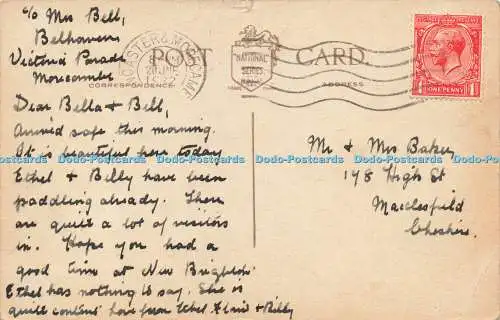 c/o Mrs Bell,
Belhaven
Victoria Parade
Morecambe
POST CARD.
CORRESPONDENCE
ADDRESS
NATIONAL
SERIES
ONE PENNY
Dear Bella & Bell,
Arrived safe this morning.
It is beautiful here today
Ethel & Billy have been
paddling already. There
are quite a lot of visitors
in. Hope you had a
good time at New Brighton
Ethel has nothing to say. She is
quite content love from Ethel & Billy
Mr & Mrs Baker
178 High St
Macclesfield
Cheshire.
Dodo-Postcards Dodo-Postcards Dodo-Postcards Dodo-Postcards Dodo-Postcards